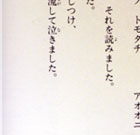 ア　トモダチ　アオオニ
それを読みました。
た。
しつけ、
流して泣きました。